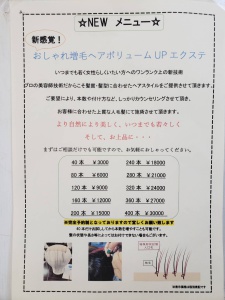 ☆NEW メニュー☆
新感覚!
おしゃれ増毛ヘアボリュームUPエクステ
いつまでも若く女性らしくいたい方へのワンランク上の髪技術
プロの美容師技術だからこそ髪質・髪型に合わせたヘアスタイルをご提供させて頂きます。
ご要望により、本数や付け方など、しっかりカウンセリングさせて頂き、
お客様に合わせた上質な人毛髪にて施術させて頂きます。
より自然により美しく、いつまでも若々しく
そして、お上品に・・・
まずはご相談だけでも可能ですので、お気軽におしゃってください。
40本 ¥3000 240本 ¥18000
80本 ¥6000 280本 ¥21000
120本 ¥9000 320本 ¥24000
160本 ¥12000 360本 ¥27000
200本 ¥15000 400本 ¥30000
※完全予約制になっておりますので宜しくお願い致します
40本だけお試ししてから本数を増やすことも可能です。